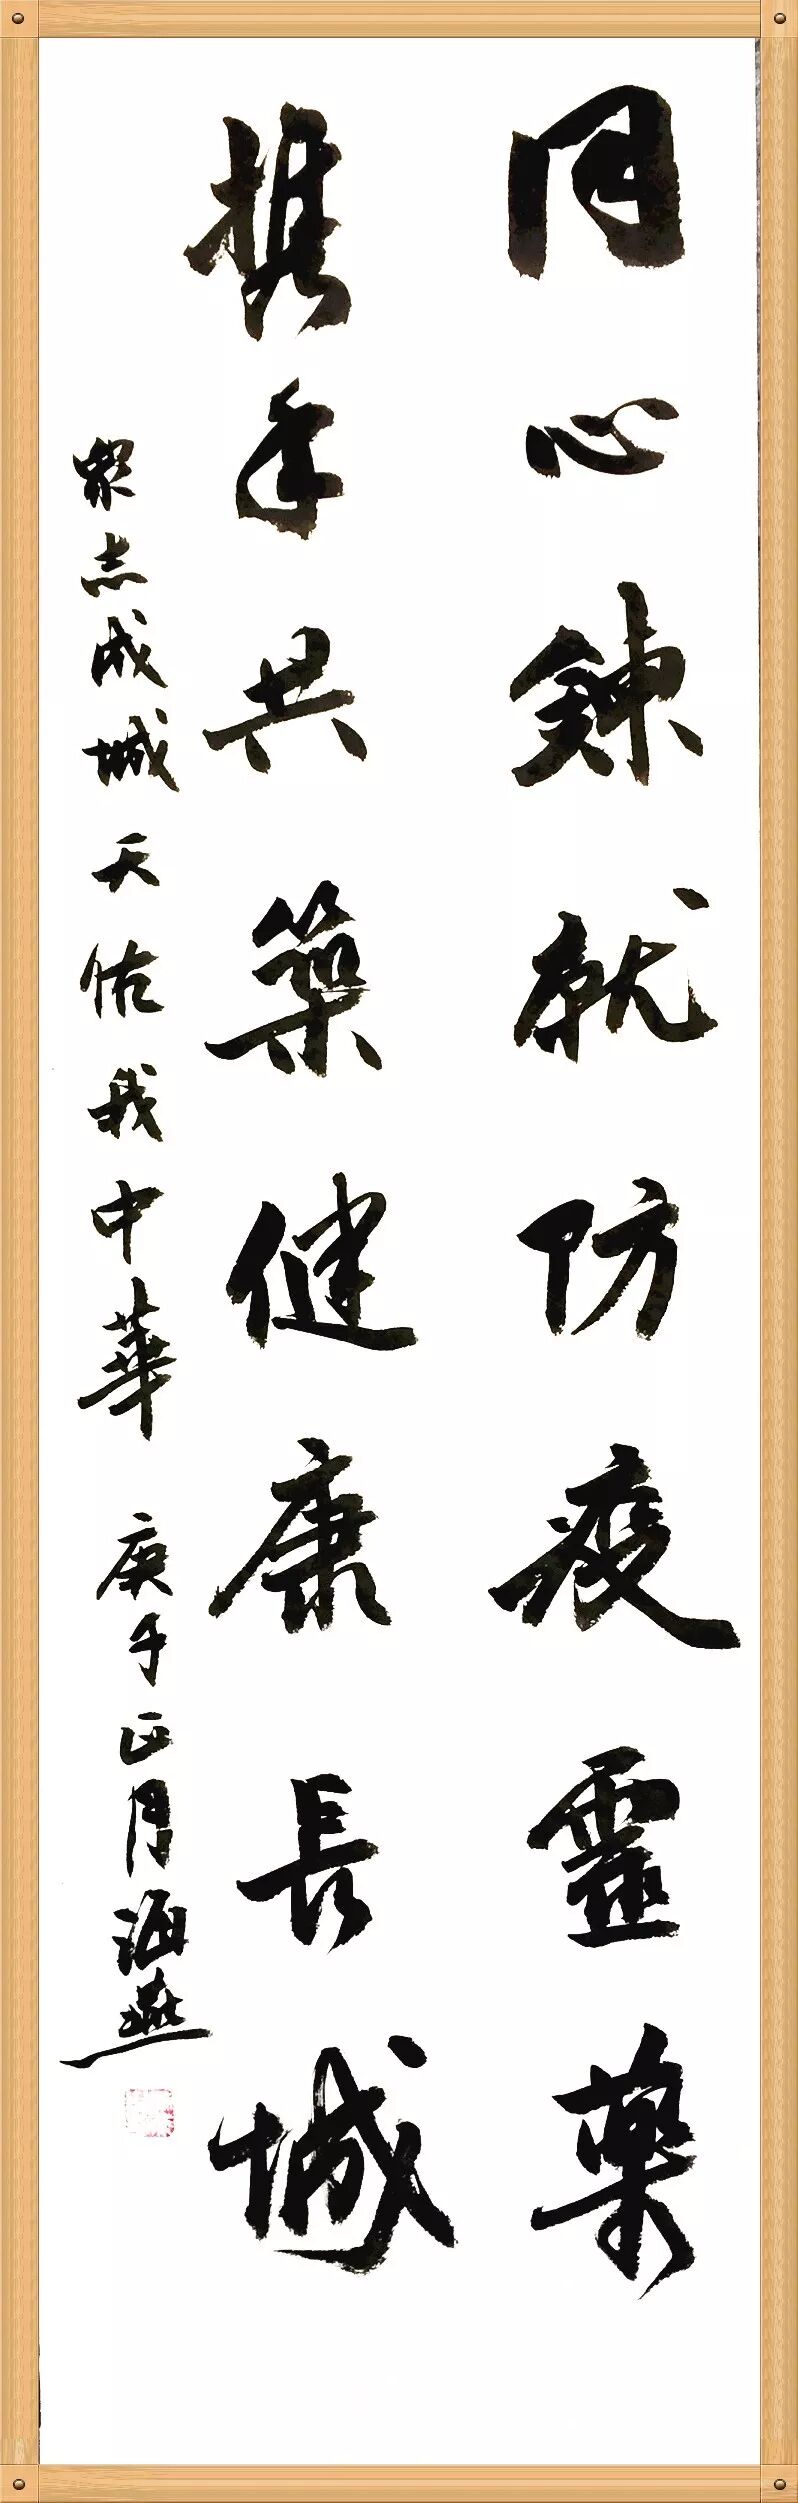 同心鍊就防疫靈藥
携手共築健康長城
眾志成城天佑我中華庚子正月海燕